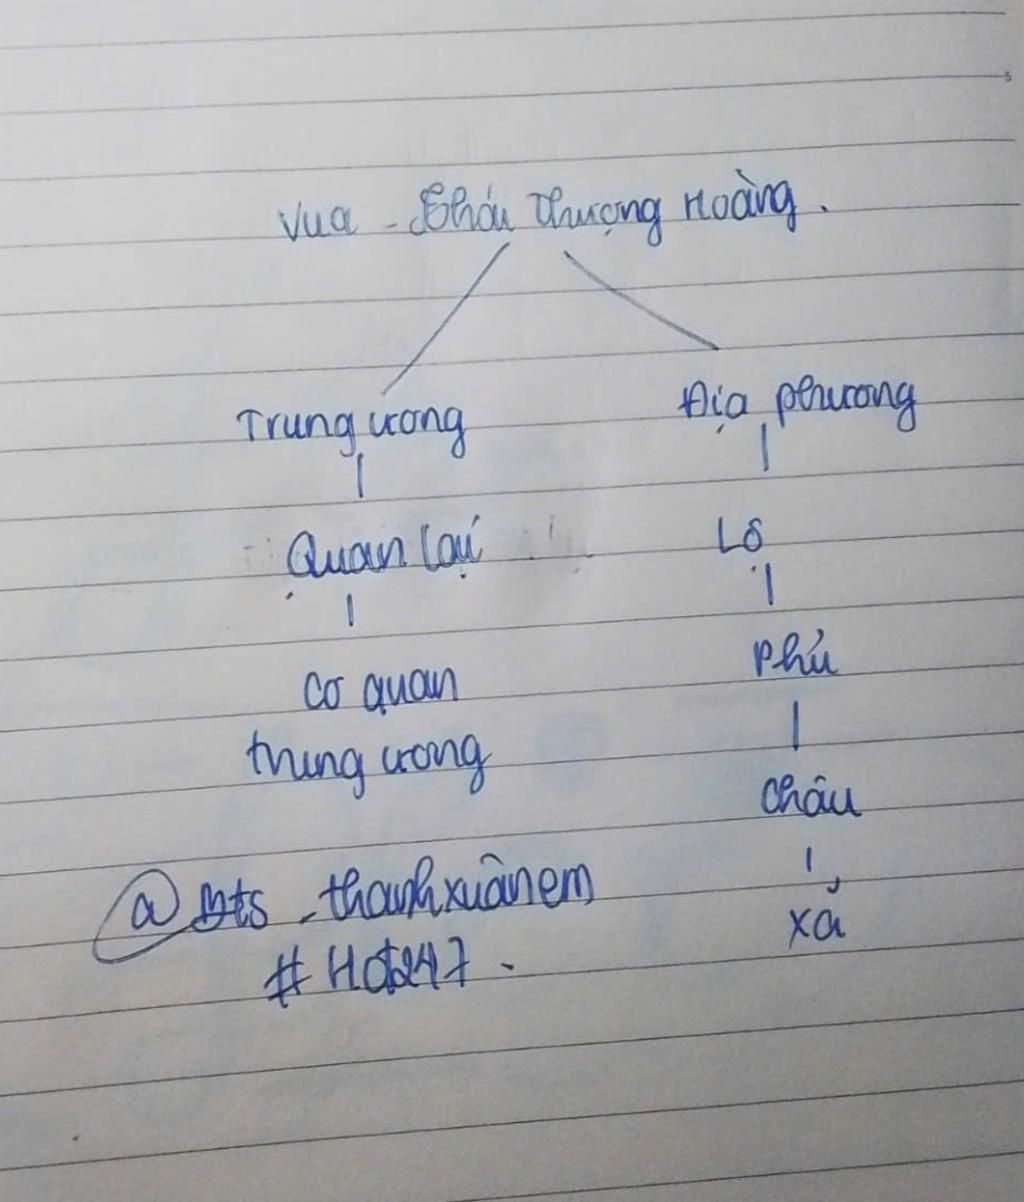 Vua - Thái Thượng Hoàng.
Trung ương
Địa phương
Quan lại
Lộ
cơ quan
Phủ
trung ương
châu
@ bts - thanhxuânem
xã
# Hd247.